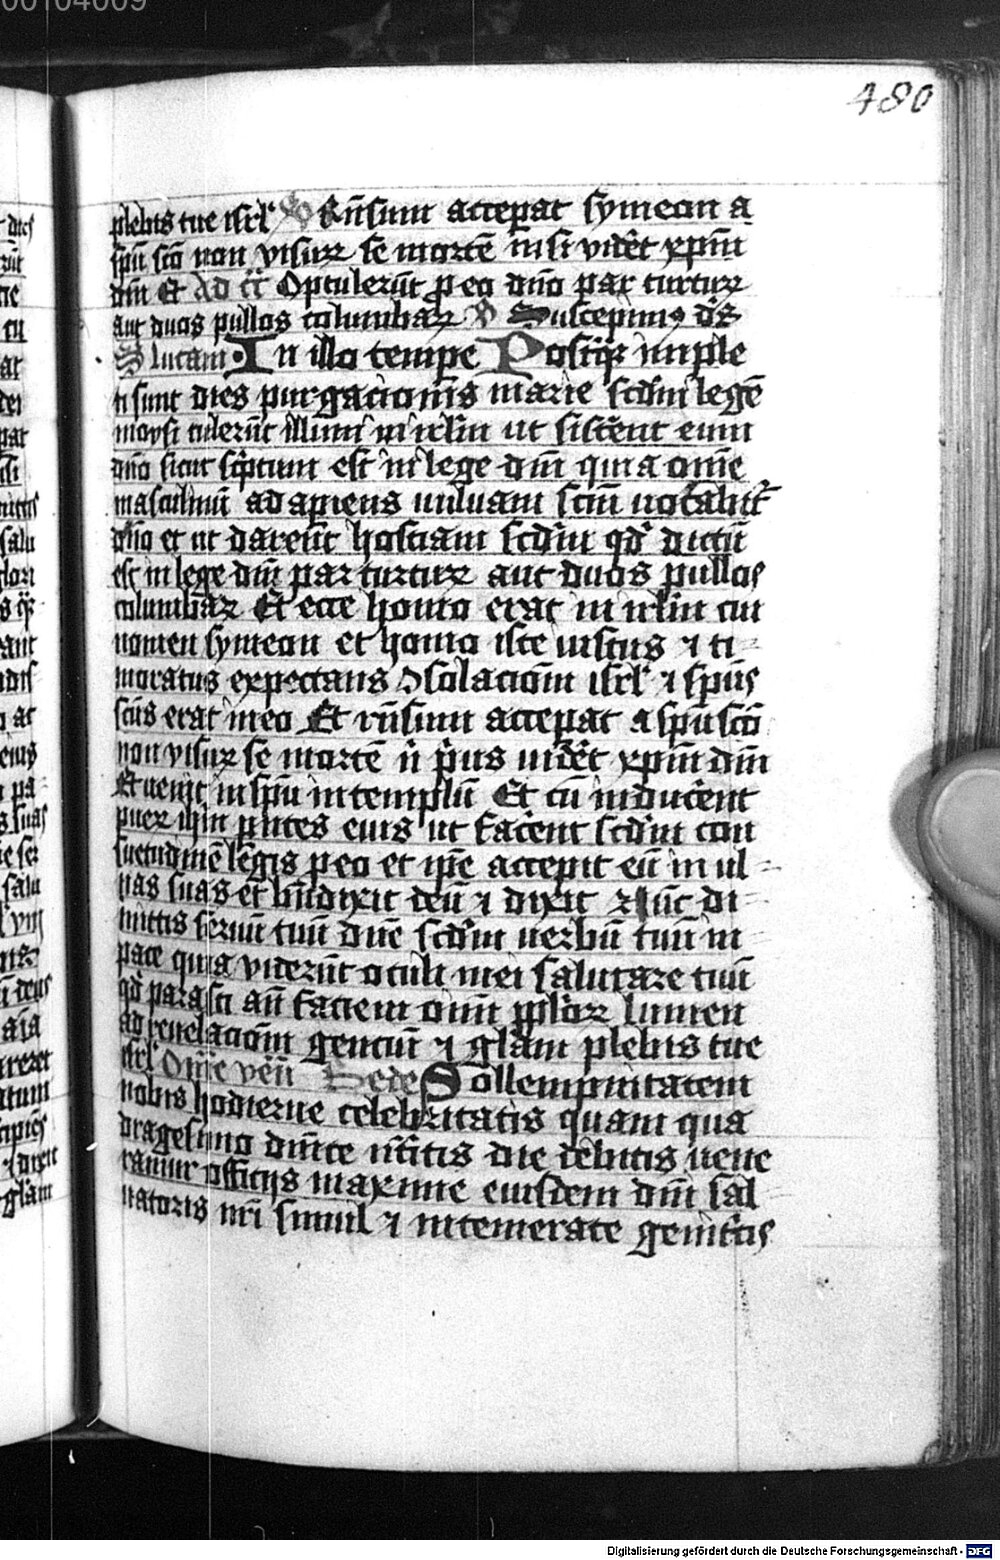 480
plebis tue isrl' Rn̄sum acceperat symeon a
sp̄u sc̄o non visurꝝ se mortē nisi vidēt xp̄m
dn̄i Et Ad cc̄ Optulerūt ꝓ eo dn̄o par turturꝝ
aut duos pullos columbarꝝ Suscepimꝰ ds
S lucam In illo tempe Postqᷓ imple
ti sunt dies purgacionis marie scd̄m legē
moysi tulerūt illum in irl̄m ut sistēent eum
dn̄o sicut sc̄ptum est in lege dn̄i quia om̄e
masculinū ad apiens uuluam sc̄m uocabit᷑
dn̄o et ut darēnt hostiam scd̄m qd̓ dictū
est in lege dn̄i par turturꝝ aut duos pullos
columbarꝝ Et ecce homo erat in irl̄m cui
nomen symeon et homo iste iustus ⁊ ti
moratus expectans ꝯsolaciom̄ isrl' ⁊ sp̄us
sc̄us erat in eo Et rn̄sum acceperat a sp̄u sc̄o
non visurꝝ se mortē n̄ p̓us vidēt xp̄m dn̄i
Et uenit in sp̄u in templū Et cū inducēnt
puerꝝ ih̄m pn̄tes eius ut facēnt scd̄m con
suetudinē legis p eo et ip̄e accepit eū in ul
nas suas et bn̄dixit deū ⁊ dixit Nūc di
mittis seruū tuū dn̄e scd̄m uerbū tuū in
pace quia viderūt oculi mei salutare tuū
qd̓ parasti an̄ faciem om̄i pp̄lorꝝ lumen
ad reuelaciom̄ genciū ⁊ gl̄am plebis tue
isrl' Om̄e ven̄ Bede Sollempnitatem
nobis hodierne celebritatis quam qua
dragesimo dn̄ice natiuitatis die debitis uene
ramur officiis maxime eiusdem dn̄i sal
uatoris nr̄i simul ⁊ intemerate genitcis
Digitalisierung gefördert durch die Deutsche Forschungsgemeinschaft - DFG